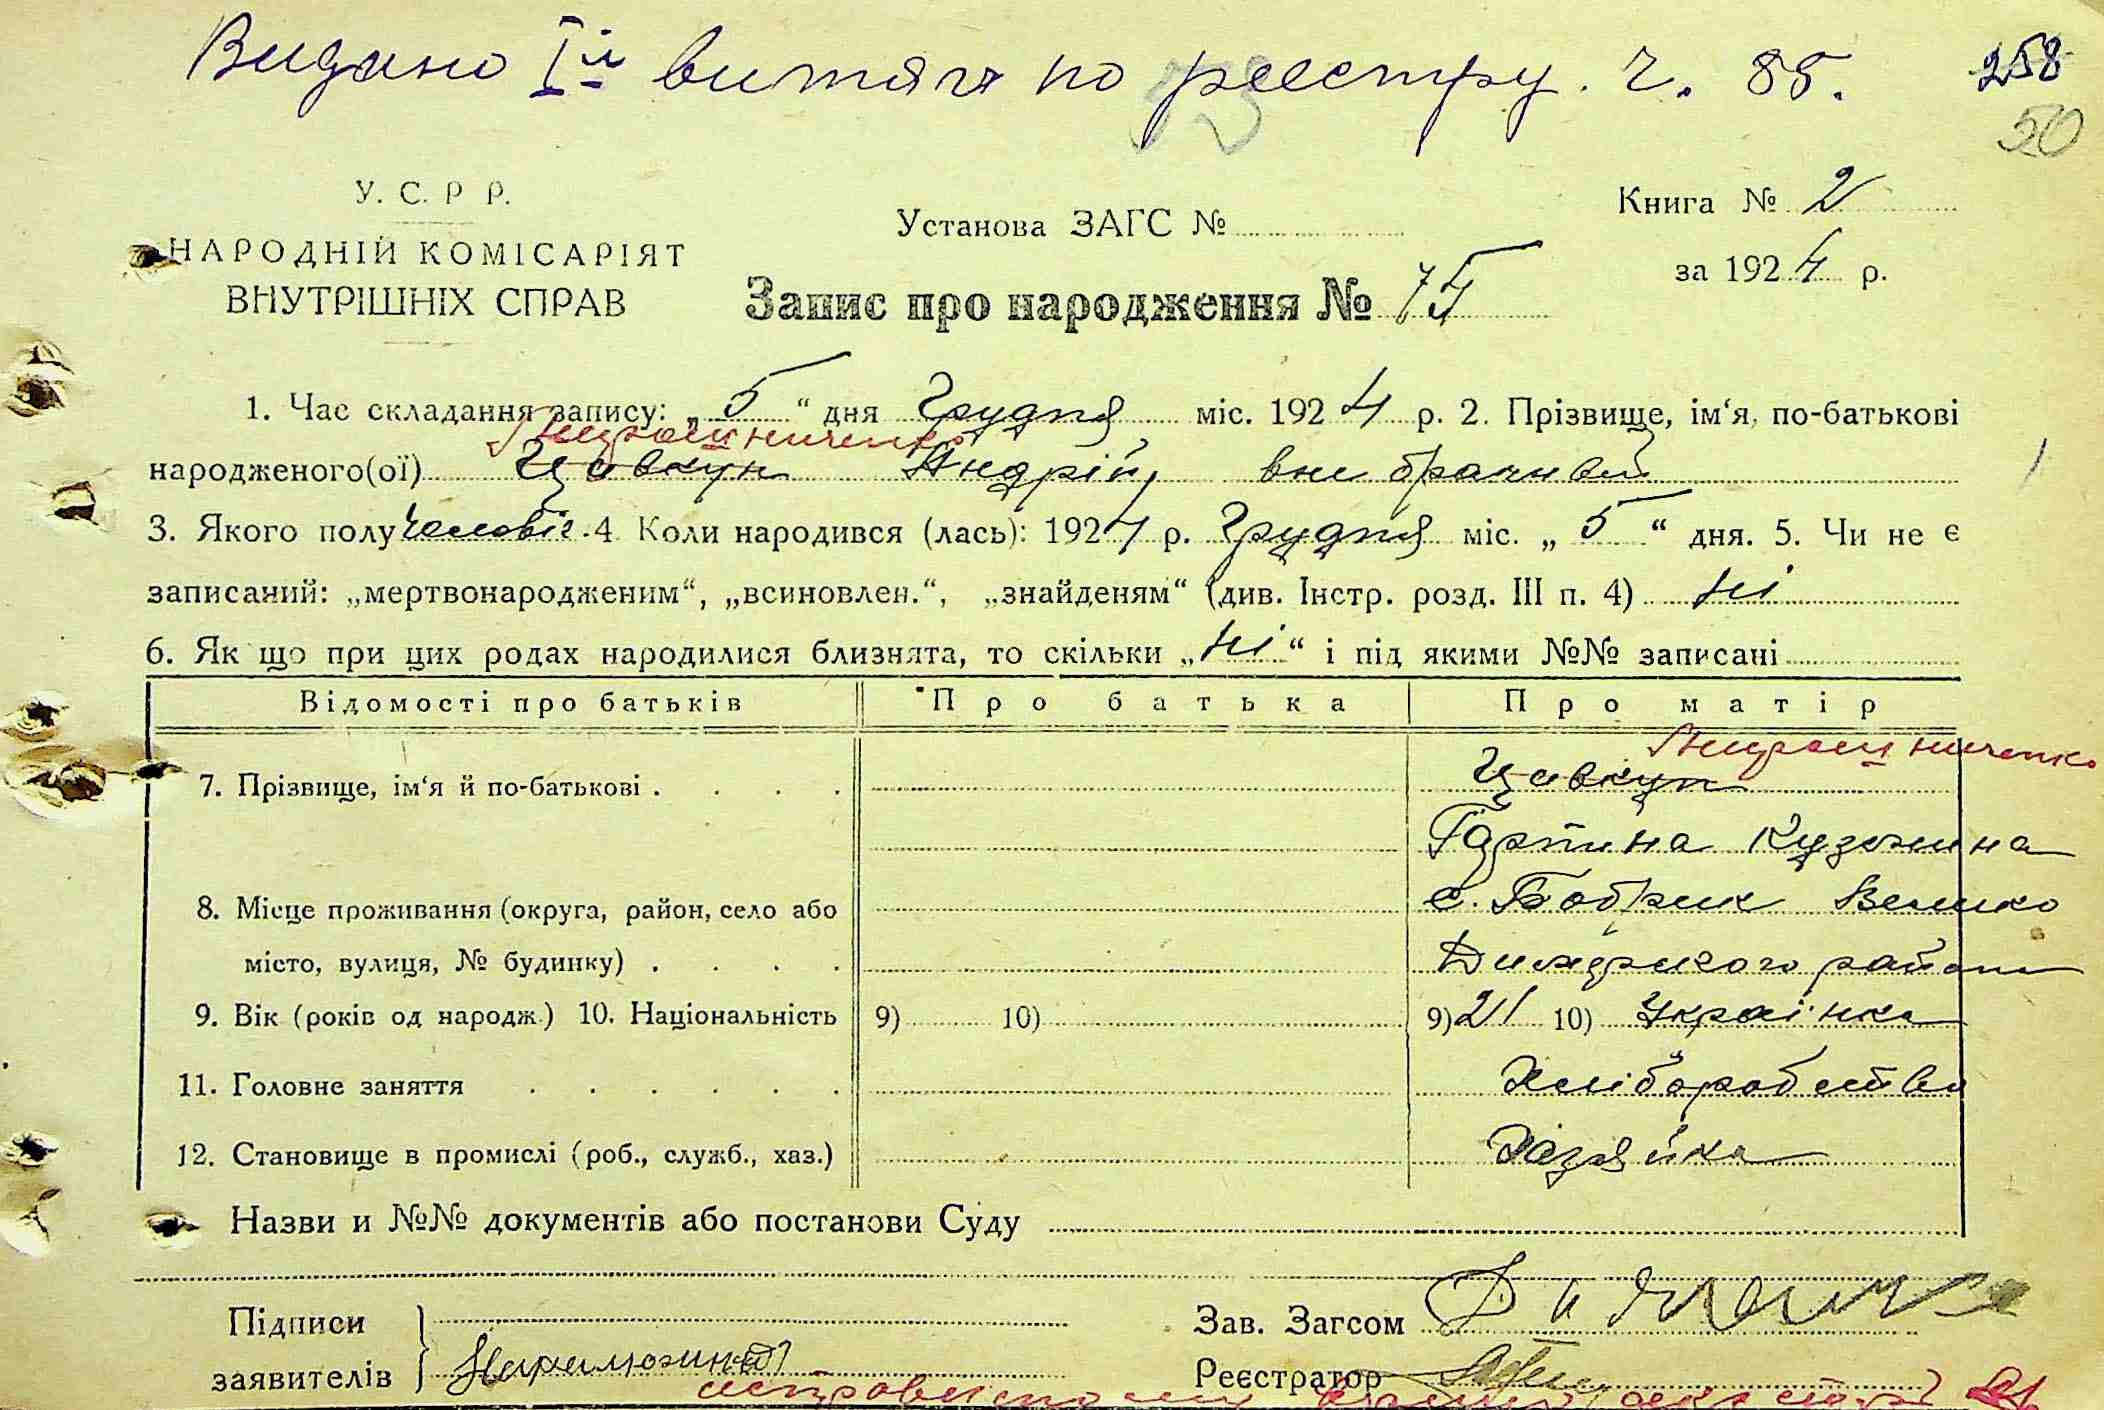 Видано I й витяг по реєстру. ч. 85. 258
50
У. С. Р Р.
НАРОДНІЙ КОМІСАРІЯТ
ВНУТРІШНІХ СПРАВ
Установа ЗАГС №
Книга № 2
за 1924 р.
Запис про народження № 75
1. Час складання запису: „5“ дня Грудня міс. 1924 р. 2. Прізвище, ім‘я, по-батькові
народженого(ої) Цавкун Андрій, вне брачний
3. Якого полу Чоловіч. 4 Коли народився (лась): 1924 р. Грудня міс. „5“ дня. 5. Чи не є
записаний: „мертвонародженим“, „всиновлен.“, „знайденям“ (див. Інстр. розд. III п. 4) ні
6. Як що при цих родах народилися близнята, то скільки „ні“ і під якими №№ записані
Відомості про батьків Про батька Про матір
7. Прізвище, ім‘я й по-батькові . . . . Цавкун
Гарпина Кузьмина
8. Місце проживання (округа, район, село або с. Бобрик Велико
місто, вулиця, № будинку) . . . . Димерського району
9. Вік (років од народж.) 10. Національність 9) 10) 9) 21 10) Украінка
11. Головне заняття . . . . . Хліборобство
12. Становище в промислі (роб., служб., хаз.) Хазяйка
Назви и №№ документів або постанови Суду
Підписи
заявителів
Зав. Загсом
Реєстратор